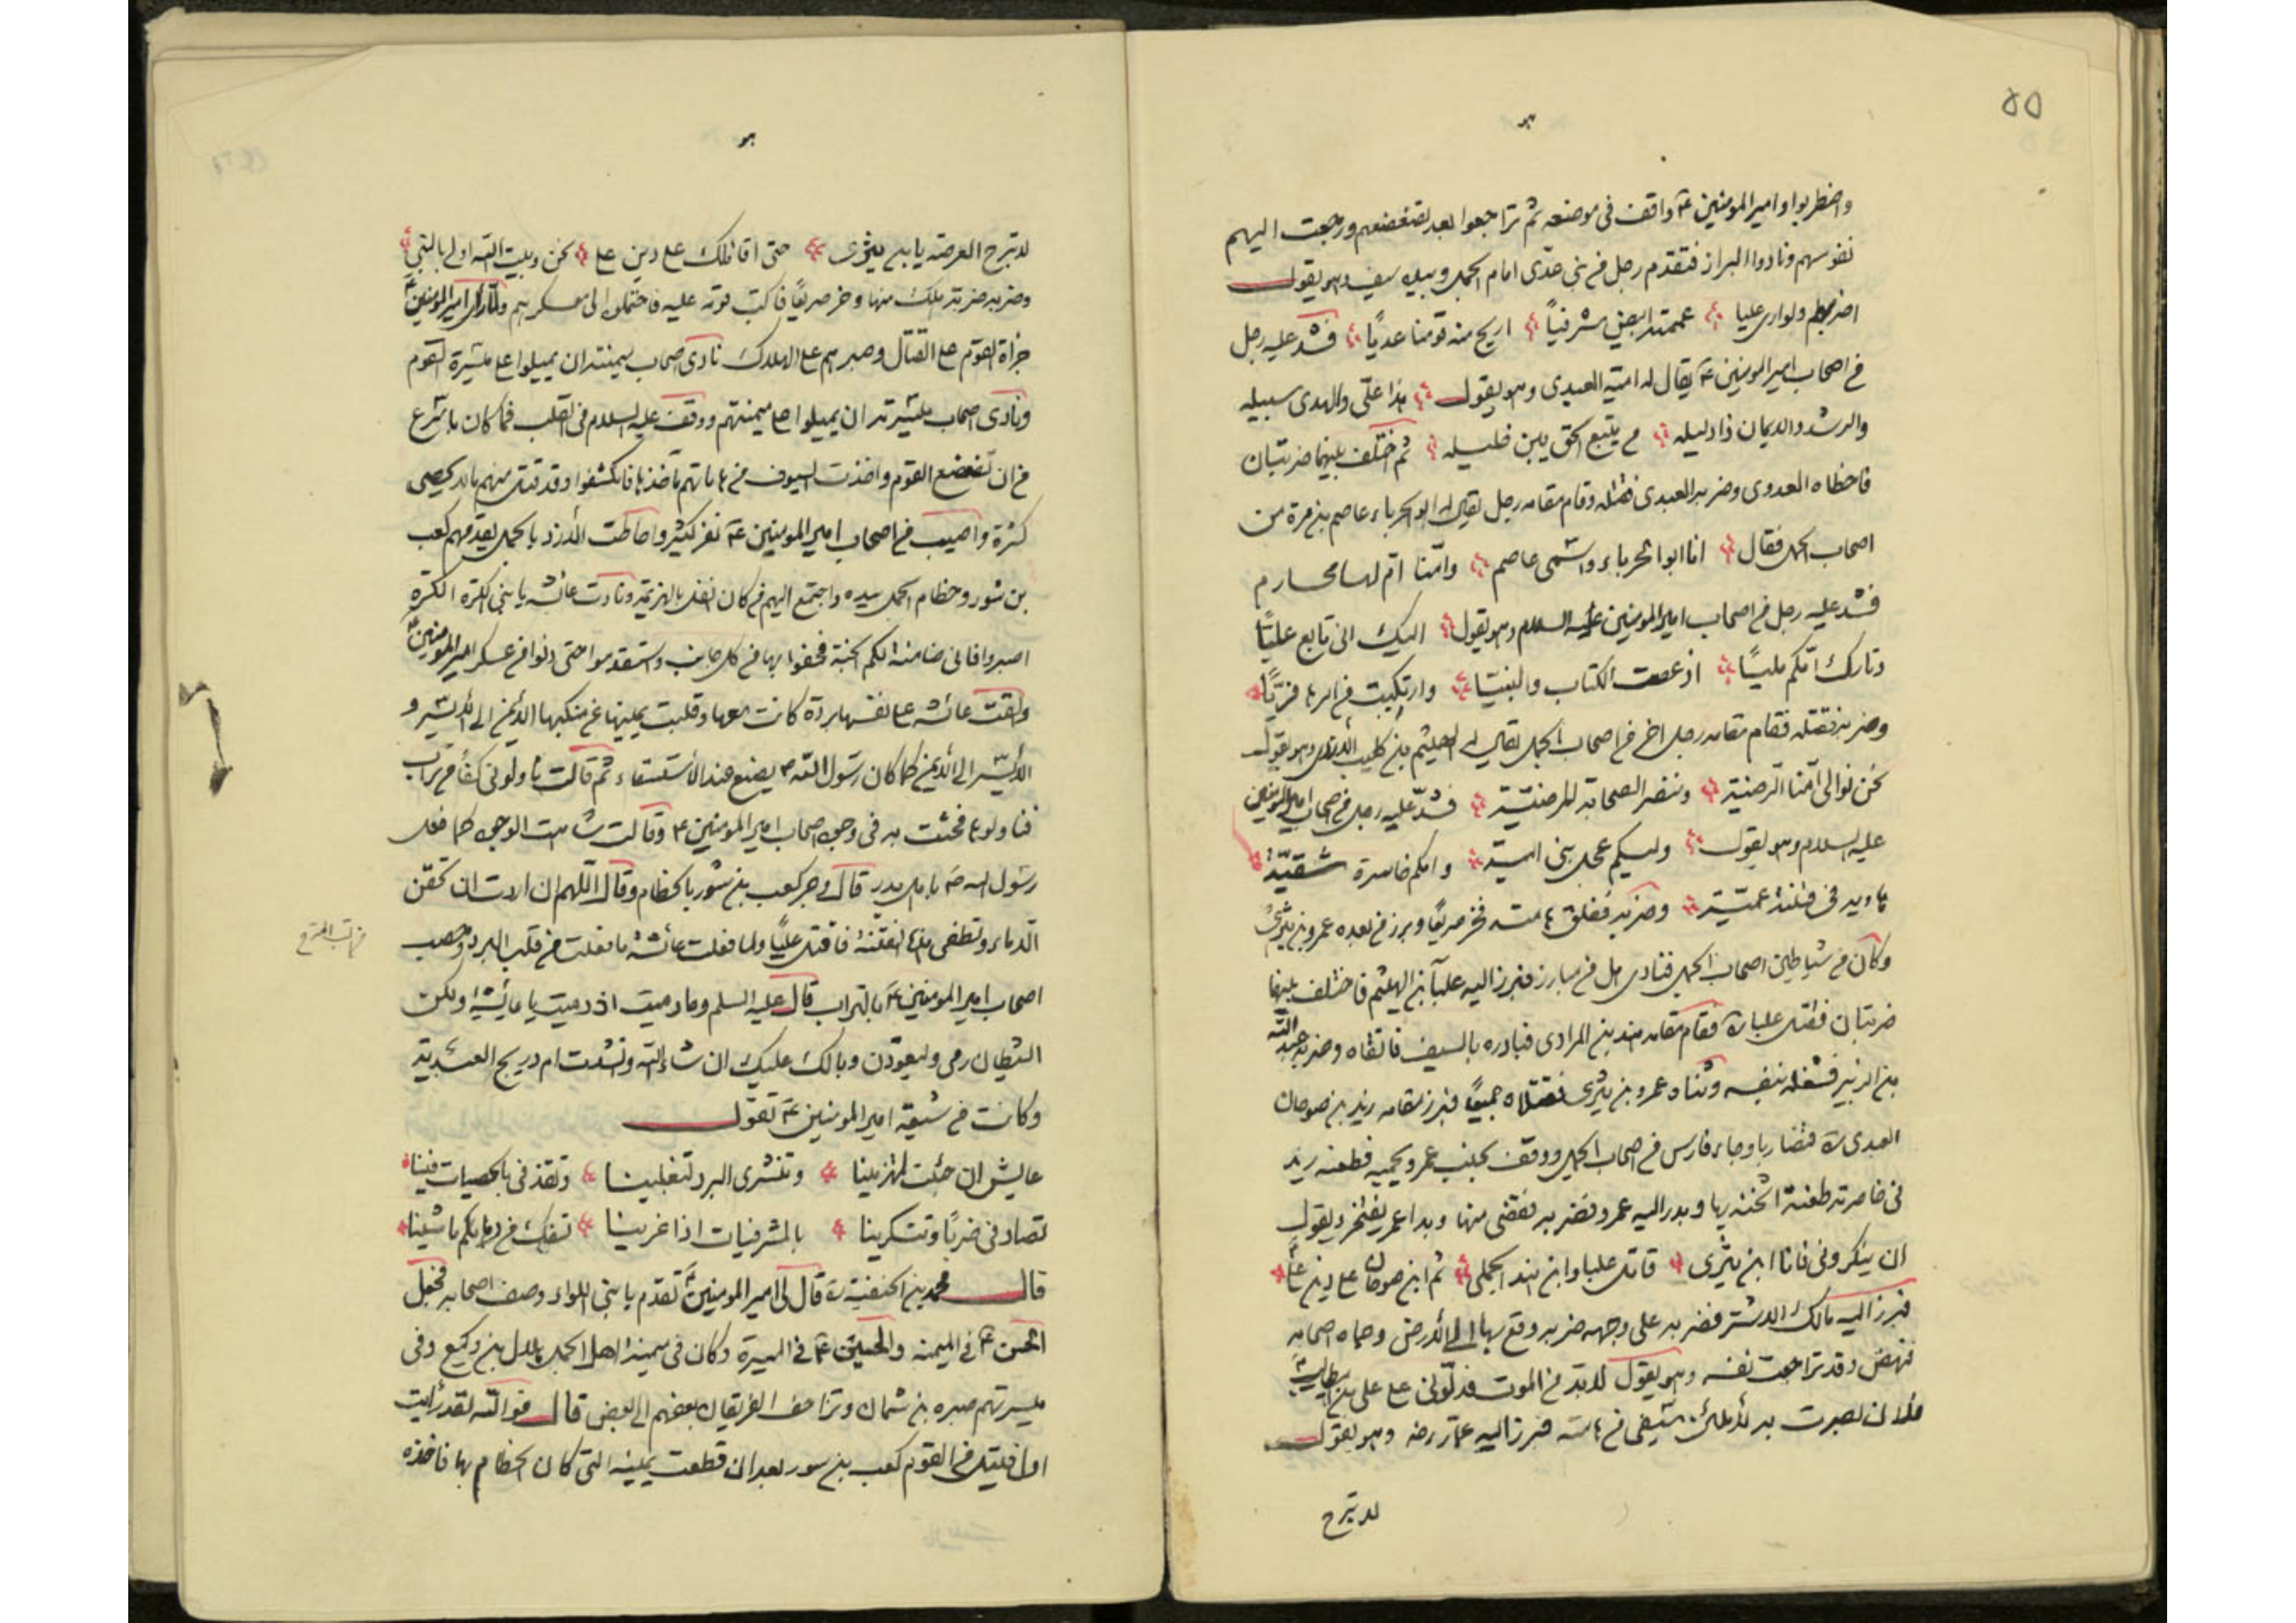 ٥٥
هو
واضطربوا وامير المومنين ع واقف فى موضعه ثم تراجعوا بعد تضعضعهم ورجعت اليهم
نفوسهم ونادوا البراز فتقدم رجل من بنى عدى امام الجمل وبيده سيف وهو يقول
اضربكم ولو ارى عليا عممته ابيض مشرفياً اريح منه قومنا عديًا فشد عليه رجل
من اصحاب امير المومنين ع يقال له امية العبدى وهو يقول هذا علىّ والهدى سبيله
والرشد والايمان ذا دليله من يتبع الحق يبن خليله ثم اختلف بينهما ضربتان
فاخطاه العدوى وضربه العبدى فقتله وقام مقامه رجل يقال له ابو الجرباء عاصم بن مرة من
اصحاب الجمل فقال انا ابو الجرباء واسمى عاصم وامّنا امّ لها محارم
فشد عليه رجل من اصحاب امير المومنين عليه السلام وهو يقول اليك انى تابع عليّاً
وتارك امّكم مليًا اذ عصت الكتاب والنبيّا وارتكبت من امرها فريّاً
وضربه فقتله فقام مقامه رجل اخر من اصحاب الجمل يقال له الهيثم بن كليب الأزدى وهو يقول
نحن نوالى امّنا الرضيّة وننصر الصحابة المرضيّة فشدّ عليه رجل من اصحاب امير المومنين
عليه السلام وهو يقول وليكم عجل بنى اميّة وامكم خاسرة شقيّة
هاوية فى فتنة عميّة وضربه ففلق هامته فخر صريعًا وبرز من بعده عمرو بن يثرى
وكان من شياطين اصحاب الجمل فنادى هل من مبارز فبرز اليه علبآ بن الهيثم فاختلف بينهما
ضربتان فقتل علباء ره فقام مقامه هند بن المرادى فبادره بالسيف فاتقاه وضربه عبد الله
بن الزبير فشغله بنفسه وثناه عمرو بن يثرى فقتلاه جميعًا فبرز مقامه زيد بن صوحان
العبدى ره فتضاربا وجاء فارس من اصحاب الجمل ووقف بجنب عمرو يحميه فطعنه زيد
فى خاصرته طعنة اثخنه بها وبدر اليه عمرو فضربه فقضى منها وبدا عمر يفتخر ويقول
ان ينكرونى فانا ابن يثرى قاتل علبا وابن هند الجملى ثم ابن صوحان على دين على
فبرز اليه مالك الاشتر فضربه على وجهه ضربه وقع بها الى الأرض وحماه اصحابه
فنهض وقد تراجعت نفسه وهو يقول لابد من الموت فدلّونى على على بن ابيطالب ع
فلان بصرت به لأملئن سيفى من هامته فبرز اليه عمّار رضه وهو يقول
لا تبرح
هو
لا تبرح العرصة يا بن يثرى حتى اقاتلك على دين على نحن وبيت الله اولى بالنبى
وضربه ضربة هلك منها وخر صريعًا فاكب قومه عليه فاحتملوه الى معسكرهم ولما راى امير المومنين ع
جراة القوم على القتال وصبرهم على الهلاك نادى اصحاب ميمنته ان يميلوا على ميسرة القوم
ونادى اصحاب ميسرته ان يميلوا على ميمنتهم ووقف عليه السلام فى القلب فما كان باسرع
من ان تضعضع القوم واخذت السيوف من هاماتهم مآخذها فانكشفوا وقد قتل منهم ما لا يحصى
كثرة واصيب من اصحاب امير المومنين ع نفر كثير واحاطت الأزد بالجمل يقدمهم كعب
بن سور وخطام الجمل بيده واجتمع اليهم من كان انفل بالهزيمة ونادت عائشه يا بنى الكرة الكرة
اصبروا فانى ضامنة لكم الجنة فحفوا بها من كل جانب واستقدموا حتى دنوا من عسكر امير المومنين ع
والقت عائشه على نفسها بردة كانت معها وقلبت يمينها عن منكبها الأيمن الى الأيسر و
الأيسر الى الأيمن كما كان رسول الله ص يصنع عند الأستسقاء ثم قالت ناولونى كفاً من تراب
فناولوها فحثت به فى وجوه اصحاب امير المومنين ع وقالت شاهت الوجوه كما فعل
رسول الله ص باهل بدر قال وجر كعب بن سور بالخطام وقال اللهم ان اردت ان تحقن
الدماء وتطفى هذه الفتنة فاقتل عليًا ولما فعلت عائشة ما فعلت من قلب البرد وحصب
اصحاب امير المومنين ع بالتراب قال عليه السلم وما رميت اذ رميت يا عائشة ولكن
الشيطان رمى وليعودن وبالك عليك ان شاء الله وانشدت ام دريج العبدية
وكانت من شيعة امير المومنين ع تقول
عايش ان جئت لتهزمينا وتنشرى البرد لتغلبينا وتقذفى بالحصيات فينا
تصادفى ضربًا وتنكرينا بالمشرفيات اذا غزينا نسفك من دمائكم ما شينا
قال محمد بن الحنفية ره قال لى امير المومنين ع تقدم يا بنى باللواء وصف اصحابه فجعل
الحسن ع فى الميمنه والحسين ع فى الميسرة وكان فى ميمنة اهل الجمل هلال بن وكيع وفى
ميسرتهم صبره بن شمان وتزاحف الفريقان بعضهم الى بعض قال فوالله لقد رأيت
اول قتيل من القوم كعب بن سور بعد ان قطعت يمينه التى كان الخطام بها فاخذه